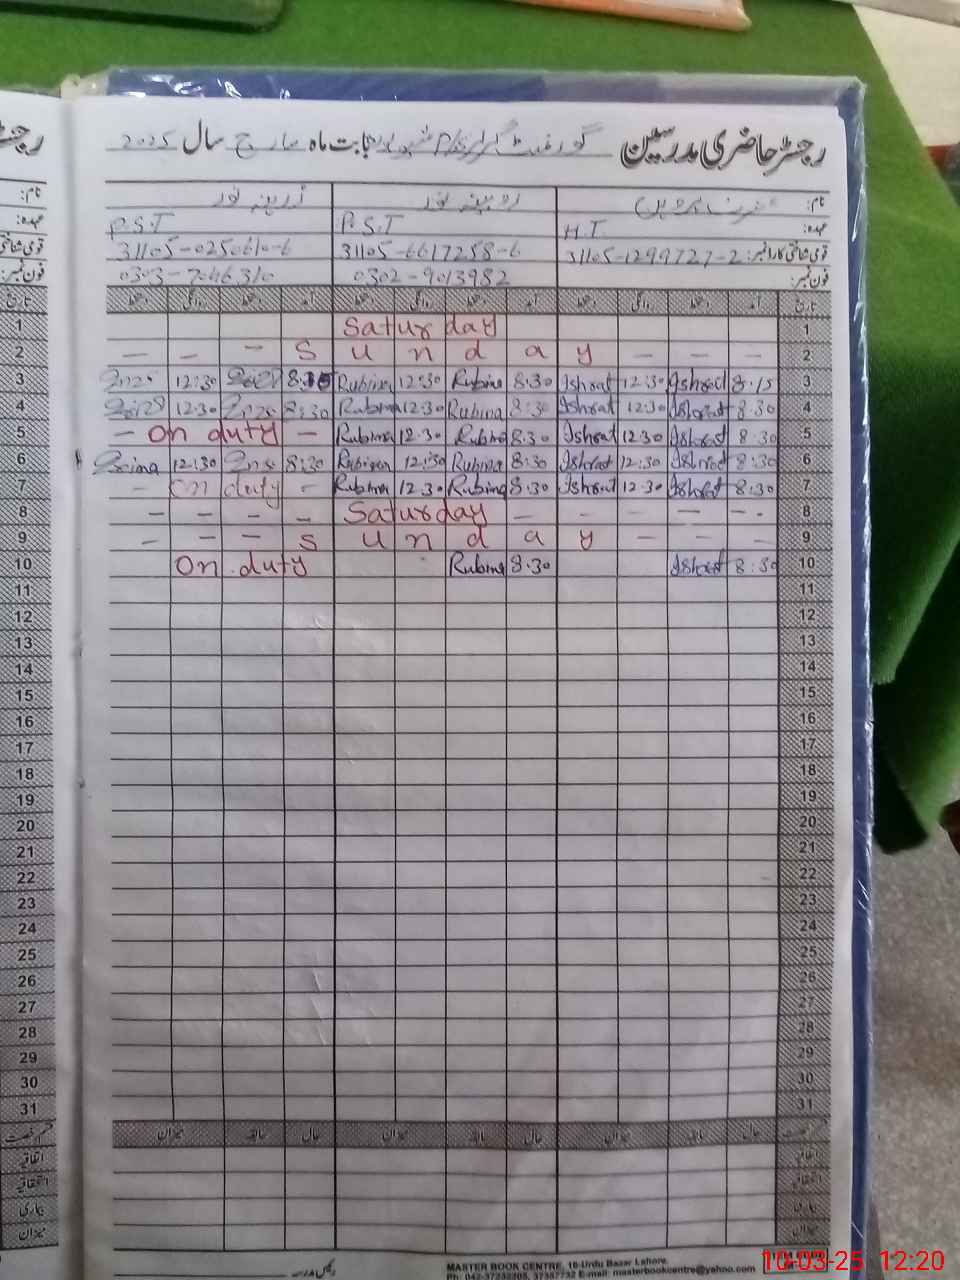 رجسٹر حاضری مدرسین گورنمنٹ گرلز بابت ماہ مارچ سال 2025
نام: روبینہ نور زرینہ نور
عہدہ: H.T. P.S.T P.S.T
قومی شناختی کارڈ نمبر: 31105-1299727-2 31105-6617258-6 31105-0250610-6
فون نمبر: 0302-9013982 0303-7046310
تاریخ آمد دستخط روانگی دستخط آمد دستخط روانگی دستخط آمد دستخط روانگی دستخط
1 Saturday 1
2 — — — S u n d a y — — — 2
3 12:30 8:15 Rubina 12:30 Rubina 8:30 Ishrat 12:30 Ishrat 8:15 3
4 12:30 8:30 Rubina 12:30 Rubina 8:30 Ishrat 12:30 Ishrat 8:30 4
5 — On duty — Rubina 12:30 Rubina 8:30 Ishrat 12:30 Ishrat 8:30 5
6 12:30 8:30 Rubina 12:30 Rubina 8:30 Ishrat 12:30 Ishrat 8:30 6
7 — On duty — Rubina 12:30 Rubina 8:30 Ishrat 12:30 Ishrat 8:30 7
8 — — — — Saturday — — — — — 8
9 — — — S u n d a y — — — 9
10 On duty Rubina 8:30 Ishrat 8:30 10
11 11
12 12
13 13
14 14
15 15
16 16
17 17
18 18
19 19
20 20
21 21
22 22
23 23
24 24
25 25
26 26
27 27
28 28
29 29
30 30
31 31
قسم رخصت حال سابقہ میزان حال سابقہ میزان حال سابقہ میزان
اتفاقیہ
استحقاقیہ
بیماری
میزان
رئیس مدرسہ
MASTER BOOK CENTRE, 16-Urdu Bazar Lahore.
Ph: 042-37232205, 37357732 E-mail: masterbookcentre@yahoo.com
10-03-25 12:20